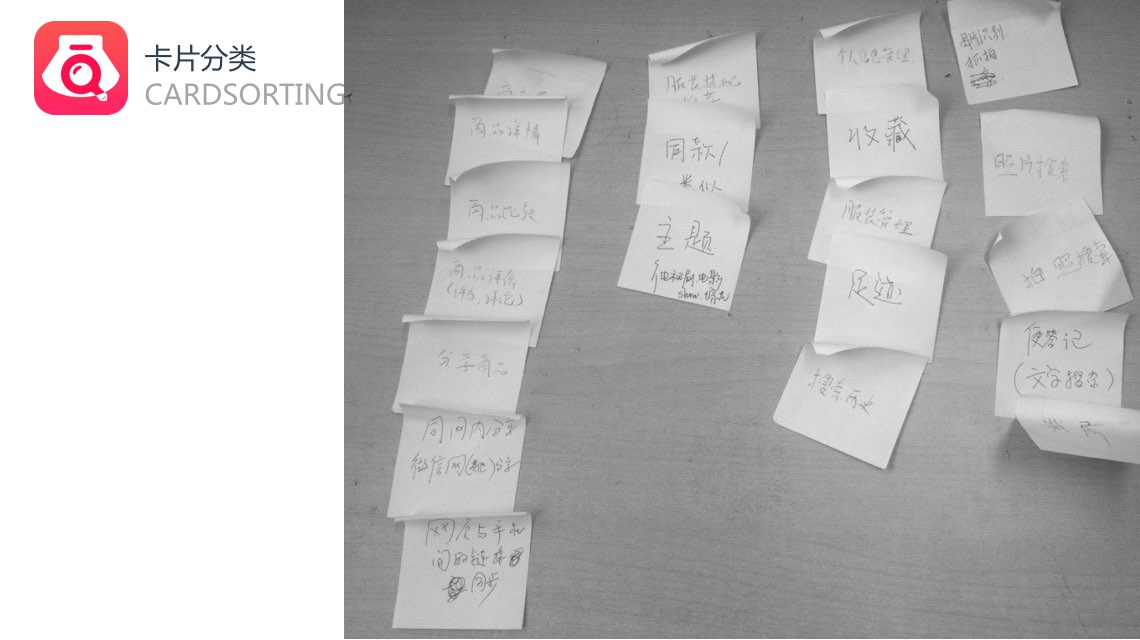 卡片分类
CARDSORTING
商品详情
商品比较
商品评价
分享商品
同网内分享
网页与手机
间的链接
同步
服装搭配
同款/
类似
主题
电视剧.电影
show.
个人信息管理
收藏
服装管理
足迹
搜索历史
图片识别
抓拍
照片搜索
拍照搜索
便签记
(文字搜索)